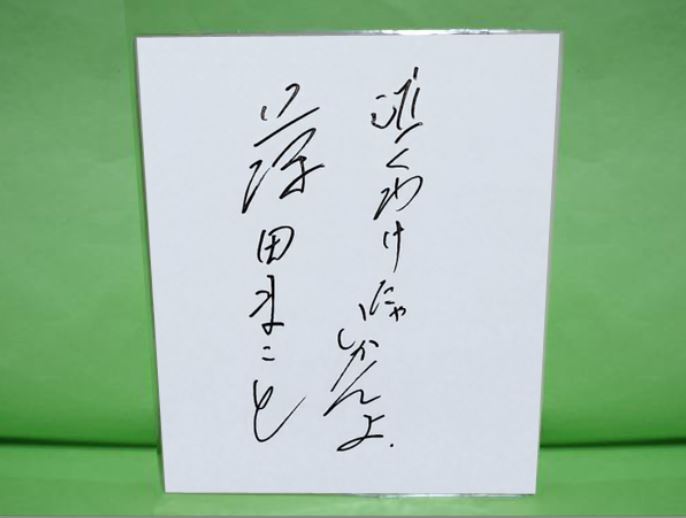 くわけにゃいかんよ.
藤田まこと